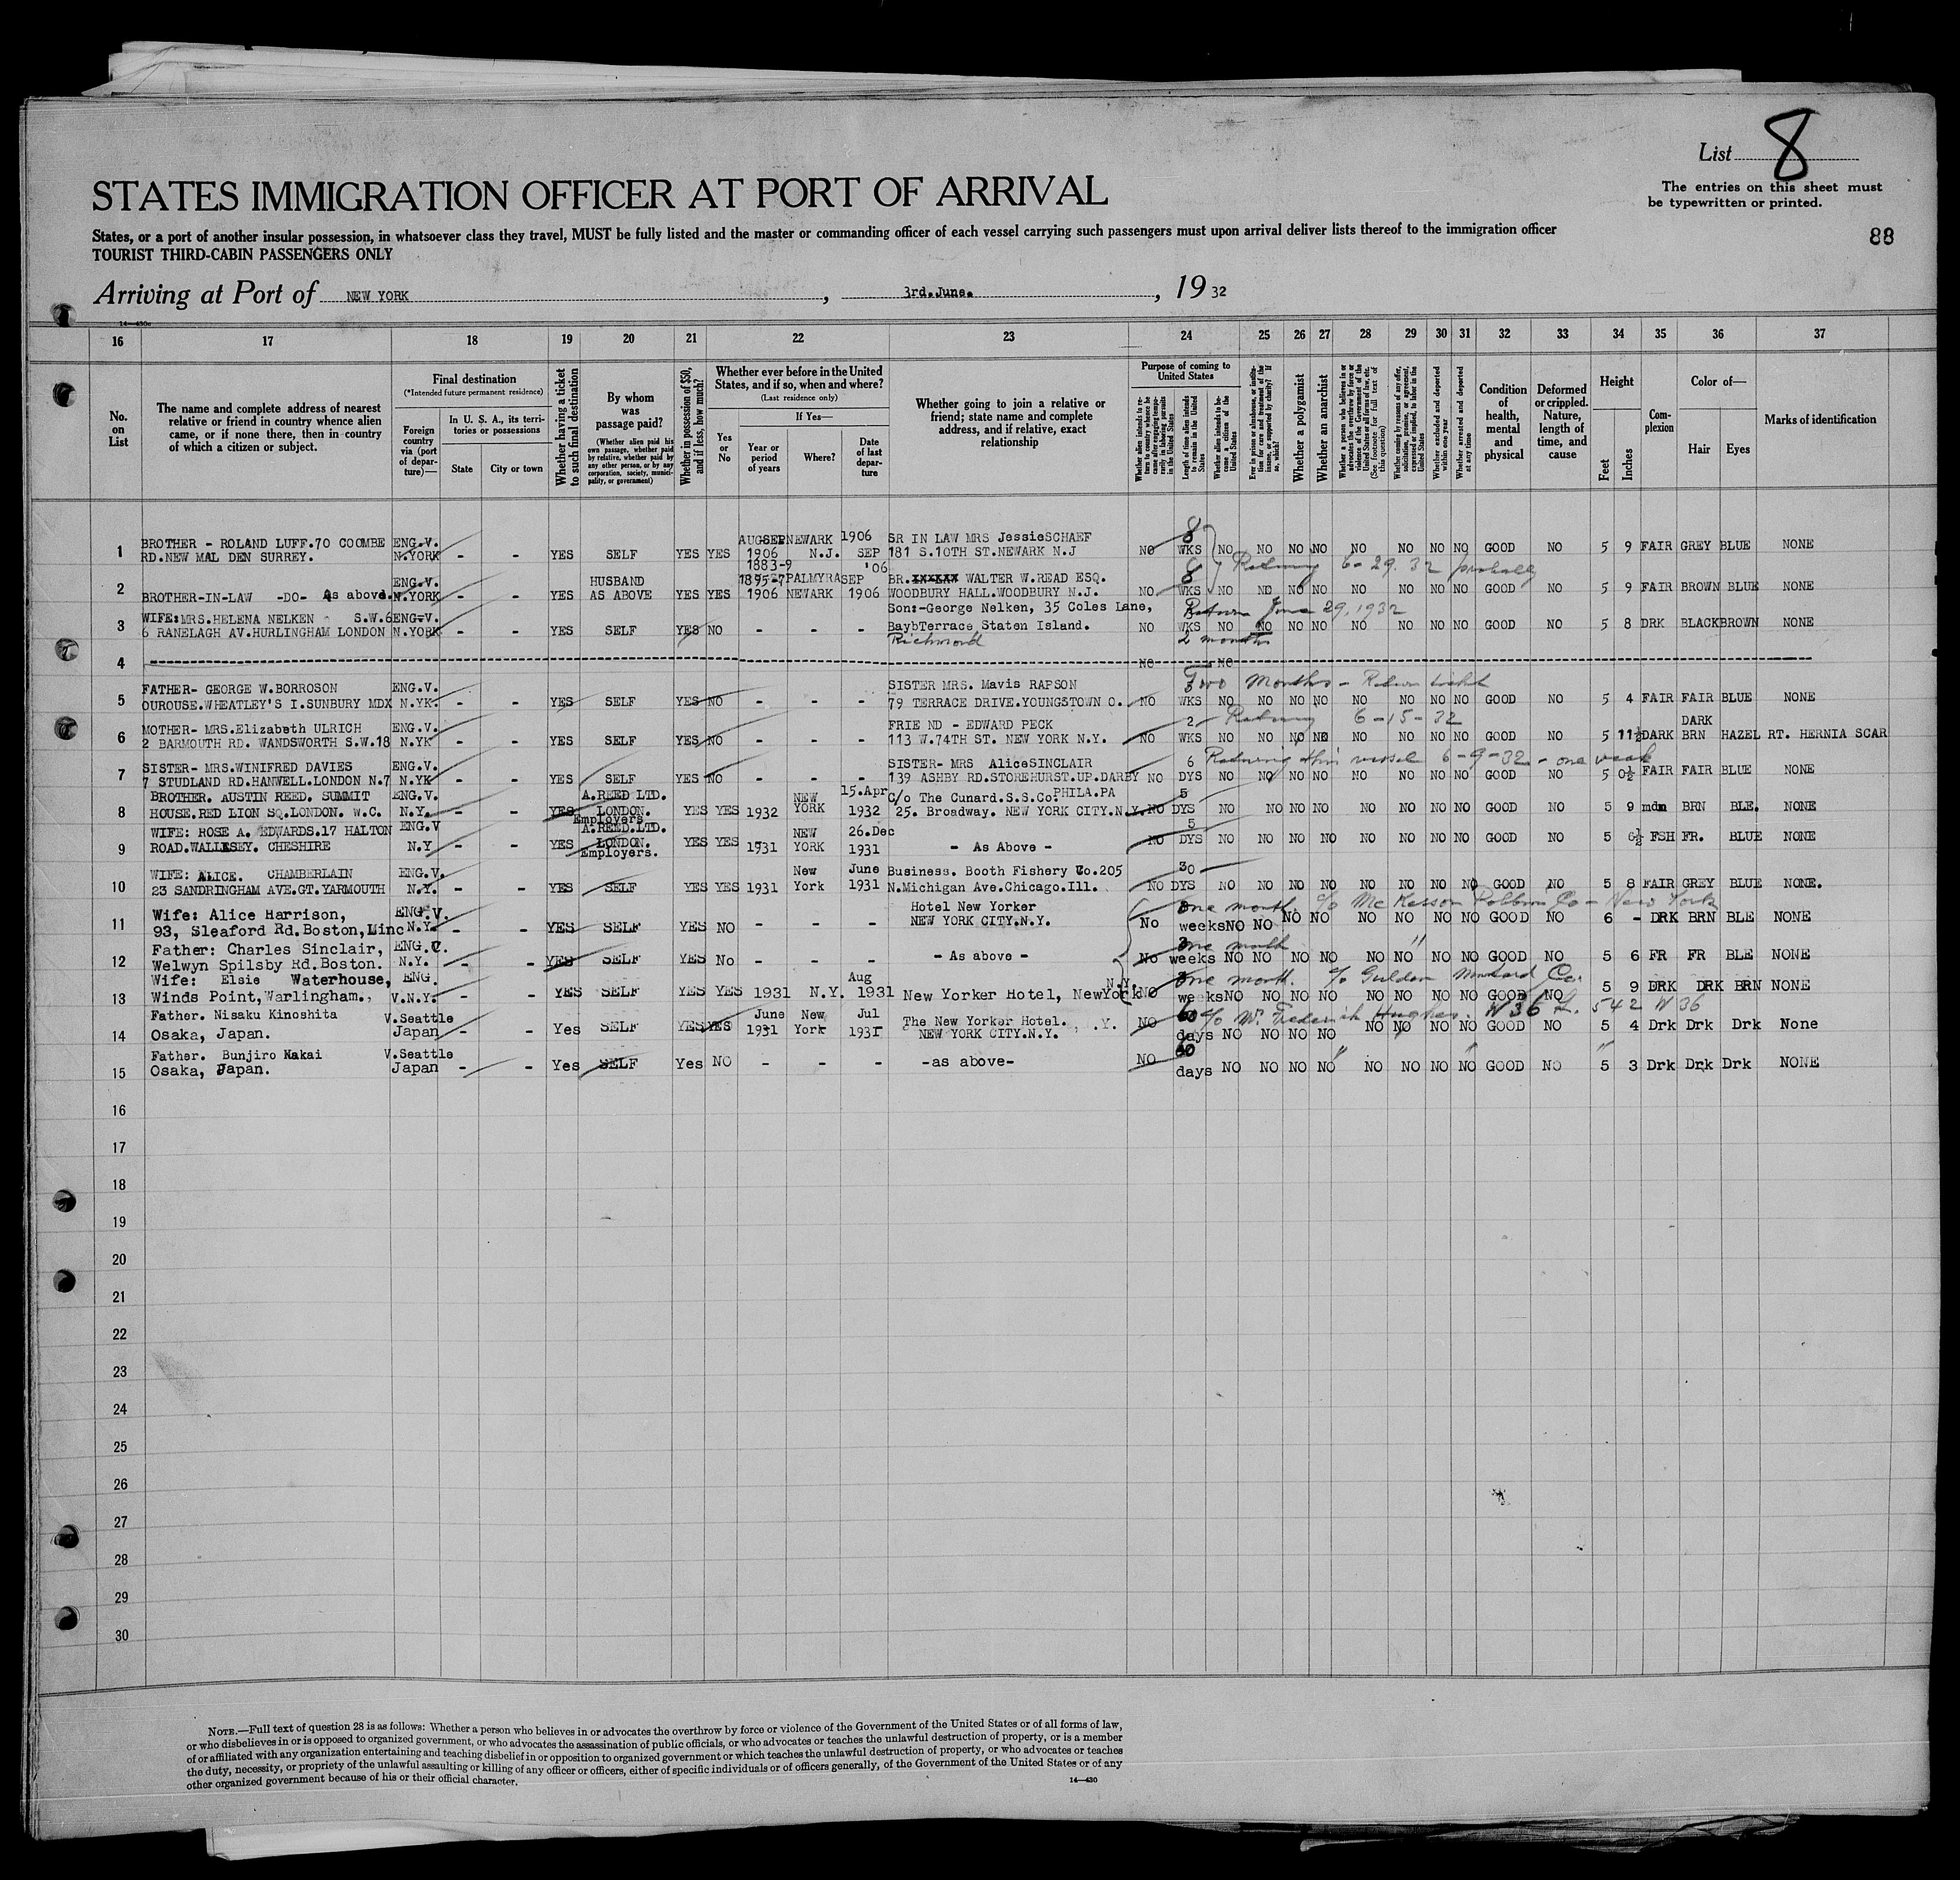 List 8
The entries on this sheet must
be typewritten or printed.
88
STATES IMMIGRATION OFFICER AT PORT OF ARRIVAL
States, or a port of another insular possession, in whatsoever class they travel, MUST be fully listed and the master or commanding officer of each vessel carrying such passengers must upon arrival deliver lists thereof to the immigration officer
TOURIST THIRD-CABIN PASSENGERS ONLY
Arriving at Port of NEW YORK, 3rd.June., 1932
16 17 18 19 20 21 22 23 24 25 26 27 28 29 30 31 32 33 34 35 36 37
No. on List
The name and complete address of nearest relative or friend in country whence alien came, or if none there, then in country of which a citizen or subject.
Final destination
(*Intended future permanent residence)
Foreign country via (port of departure)—
In U. S. A., its territories or possessions
State
City or town
Whether having a ticket to such final destination
By whom was passage paid?
(Whether alien paid his own passage, whether paid by relative, whether paid by any other person, or by any corporation, society, municipality, or government)
Whether in possession of $50, and if less, how much?
Whether ever before in the United States, and if so, when and where?
(Last residence only)
Yes or No
If Yes—
Year or period of years
Where?
Date of last departure
Whether going to join a relative or friend; state name and complete address, and if relative, exact relationship
Purpose of coming to United States
Length of time alien intends to remain in the United States
Whether alien intends to become a citizen of the United States
Whether a polygamist
Whether an anarchist
Whether excluded and deported within one year
Whether arrested and deported at any time
Condition of health, mental and physical
Deformed or crippled. Nature, length of time, and cause
Height
Feet
Inches
Complexion
Color of—
Hair
Eyes
Marks of identification
1 BROTHER - ROLAND LUFF.70 COOMBE RD.NEW MAL DEN SURREY. ENG.V. N.YORK - - YES SELF YES YES 1906 NEWARK N.J. 1906 SEP SR IN LAW MRS JessieSCHAEF 181 S.10TH ST.NEWARK N.J NO 8 WKS NO NO NO NO NO NO NO NO GOOD NO 5 9 FAIR GREY BLUE NONE
Returning 6-29.32 probably
2 BROTHER-IN-LAW -DO- As above. ENG.V. N.YORK - - YES HUSBAND AS ABOVE YES YES 1906 PALMYRA NEWARK SEP 1906 BR. WALTER W.READ ESQ. WOODBURY HALL.WOODBURY N.J. NO 8 WKS NO NO NO NO NO NO NO NO GOOD NO 5 9 FAIR BROWN BLUE NONE
Return June 29, 1932
3 WIFE:MRS.HELENA NELKEN S.W.6 6 RANELAGH AV.HURLINGHAM LONDON ENG.V. N.YORK - - YES SELF YES NO - - - Son:-George Nelken, 35 Coles Lane, BaybTerrace Staten Island. Richmond NO WKS 2 months NO NO NO NO NO NO NO NO GOOD NO 5 8 DRK BLACK BROWN NONE
4 NO NO
Two Months - Return ticket
5 FATHER- GEORGE W.BORROSON OUROUSE.WHEATLEY'S I.SUNBURY MDX ENG.V. N.YK. - - YES SELF YES NO - - - SISTER MRS. Mavis RAPSON 79 TERRACE DRIVE.YOUNGSTOWN O. NO WKS NO NO NO NO NO NO NO NO GOOD NO 5 4 FAIR FAIR BLUE NONE
Returning 6-15-32
6 MOTHER- MRS.Elizabeth ULRICH 2 BARMOUTH RD. WANDSWORTH S.W.18 ENG.V. N.YK - - YES SELF YES NO - - - FRIE ND - EDWARD PECK 113 W.74TH ST. NEW YORK N.Y. NO 2 WKS NO NO NO NO NO NO NO NO GOOD NO 5 11½ DARK DARK BRN HAZEL RT. HERNIA SCAR
Returning this vessel 6-9-32 - one week
7 SISTER- MRS.WINIFRED DAVIES 7 STUDLAND RD.HANWELL.LONDON N.7 ENG.V. N.YK - - YES SELF YES NO - - - SISTER- MRS AliceSINCLAIR 139 ASHBY RD.STOREHURST.UP.DARBY PHILA.PA NO 6 DYS NO NO NO NO NO NO NO NO GOOD NO 5 0½ FAIR FAIR BLUE NONE
8 BROTHER. AUSTIN REED. SUMMIT HOUSE.RED LION SQ.LONDON. W.C. ENG.V. N.Y. - - YES A.REED LTD. LONDON. Employers YES YES 1932 NEW YORK 15.Apr 1932 C/o The Cunard.S.S.Co. 25. Broadway. NEW YORK CITY.N.Y. NO 5 DYS NO NO NO NO NO NO NO NO GOOD NO 5 9 mdm BRN BLE. NONE
9 WIFE: ROSE A. EDWARDS.17 HALTON ROAD.WALLASEY. CHESHIRE ENG.V N.Y - - YES A.REED.LTD. LONDON. Employers. YES YES 1931 NEW YORK 26.Dec 1931 - As Above - NO 5 DYS NO NO NO NO NO NO NO NO GOOD NO 5 0½ FSH FR. BLUE NONE
10 WIFE: ALICE. CHAMBERLAIN 23 SANDRINGHAM AVE.GT.YARMOUTH ENG.V. N.Y. - - YES SELF YES YES 1931 New York June 1931 Business. Booth Fishery Co.205 N.Michigan Ave.Chicago.Ill. NO 30 DYS NO NO NO NO NO NO NO NO GOOD NO 5 8 FAIR GREY BLUE NONE.
one month. c/o McKesson Robbins Co - New York
11 Wife: Alice Harrison, 93, Sleaford Rd.Boston,Linc ENG.V. N.Y. - - YES SELF YES NO - - - Hotel New Yorker NEW YORK CITY.N.Y. No weeks NO NO NO NO NO NO NO NO GOOD NO 6 - DRK BRN BLE NONE
one month "
12 Father: Charles Sinclair, Welwyn Spilsby Rd.Boston. ENG.V. N.Y. - - YES SELF YES No - - - - As above - No 3 weeks NO NO NO NO NO NO NO NO GOOD NO 5 6 FR FR BLE NONE
one month. c/o Gulden Mustard Co.
13 Wife: Elsie Waterhouse, Winds Point,Warlingham., ENG. V.N.Y. - - YES SELF YES YES 1931 N.Y. Aug 1931 New Yorker Hotel, NewYork N.Y. NO 3 weeks NO NO NO NO NO NO NO NO GOOD NO 5 9 DRK DRK BRN NONE
c/o Mr. Frederick Hughes. W 36 542 W 36
14 Father. Nisaku Kinoshita Osaka, Japan. V.Seattle Japan - - Yes SELF YES YES June 1931 New York Jul 1931 The New Yorker Hotel. N.Y. NEW YORK CITY.N.Y. NO 60 days NO NO NO NO NO NO NO NO GOOD NO 5 4 Drk Drk Drk None
15 Father. Bunjiro Nakai Osaka, Japan. V.Seattle Japan - - Yes SELF Yes NO - - - -as above- NO days NO NO NO NO NO NO NO NO GOOD NO 5 3 Drk Drk Drk NONE
16
17
18
19
20
21
22
23
24
25
26
27
28
29
30
NOTE.—Full text of question 28 is as follows: Whether a person who believes in or advocates the overthrow by force or violence of the Government of the United States or of all forms of law,
or who disbelieves in or is opposed to organized government, or who advocates the assassination of public officials, or who advocates or teaches the unlawful destruction of property, or is a member
of or affiliated with any organization entertaining and teaching disbelief in or opposition to organized government or which teaches the unlawful destruction of property, or who advocates or teaches
the duty, necessity, or propriety of the unlawful assaulting or killing of any officer or officers, either of specific individuals or of officers generally, of the Government of the United States or of any
other organized government because of his or their official character.
14—430